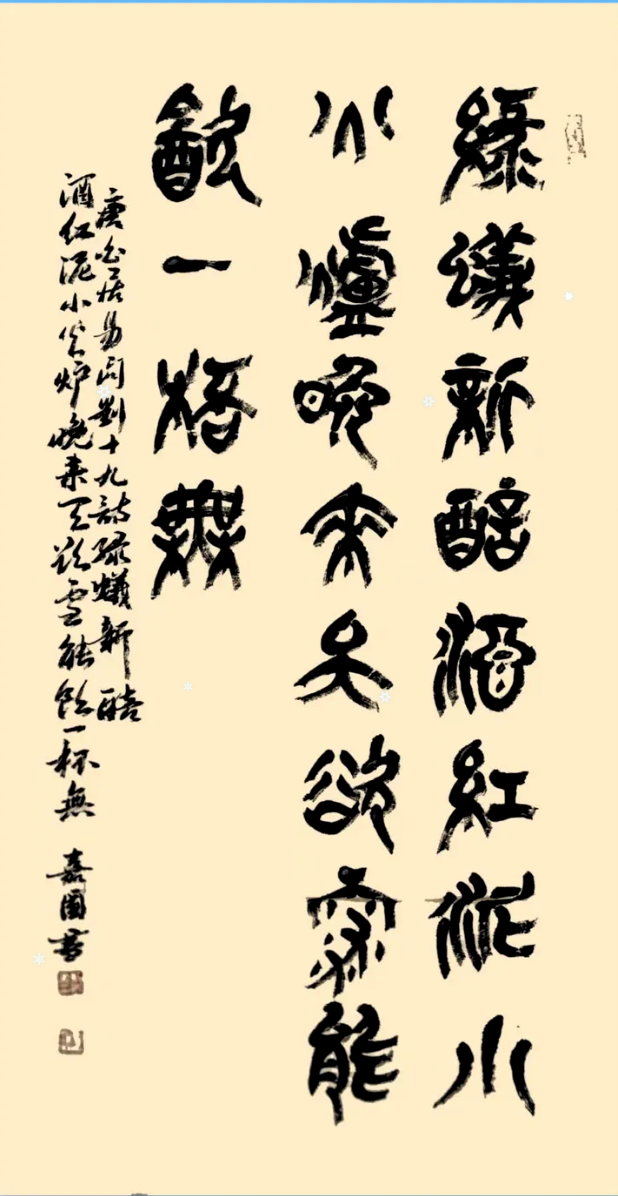 綠蟻新醅酒紅泥小
火爐晚來天欲雪能
飲一桮無
唐白居易问劉十九詩绿蟻新醅
酒红泥小火炉晚来天欲雪能飲一杯無 嘉書